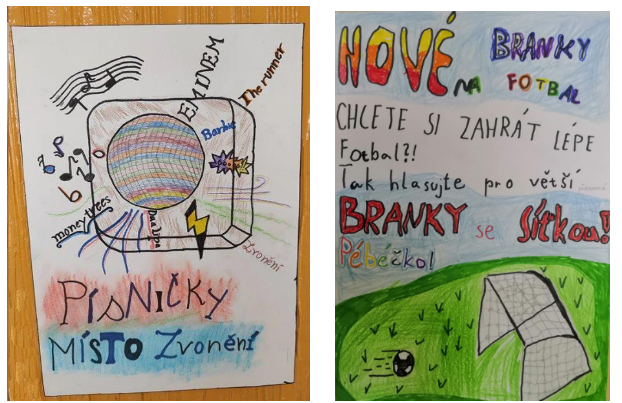 EMINEM
The runner
Barbie
money trees
Dua Lipa
Zvonění
PÍSNIČKY
MÍSTO Zvonění
NOVÉ BRANKY
NA FOTBAL
CHCETE SI ZAHRÁT LÉPE
Fotbal?!
Tak hlasujte pro větší
BRANKY se Síťkou!
Pébéčko!